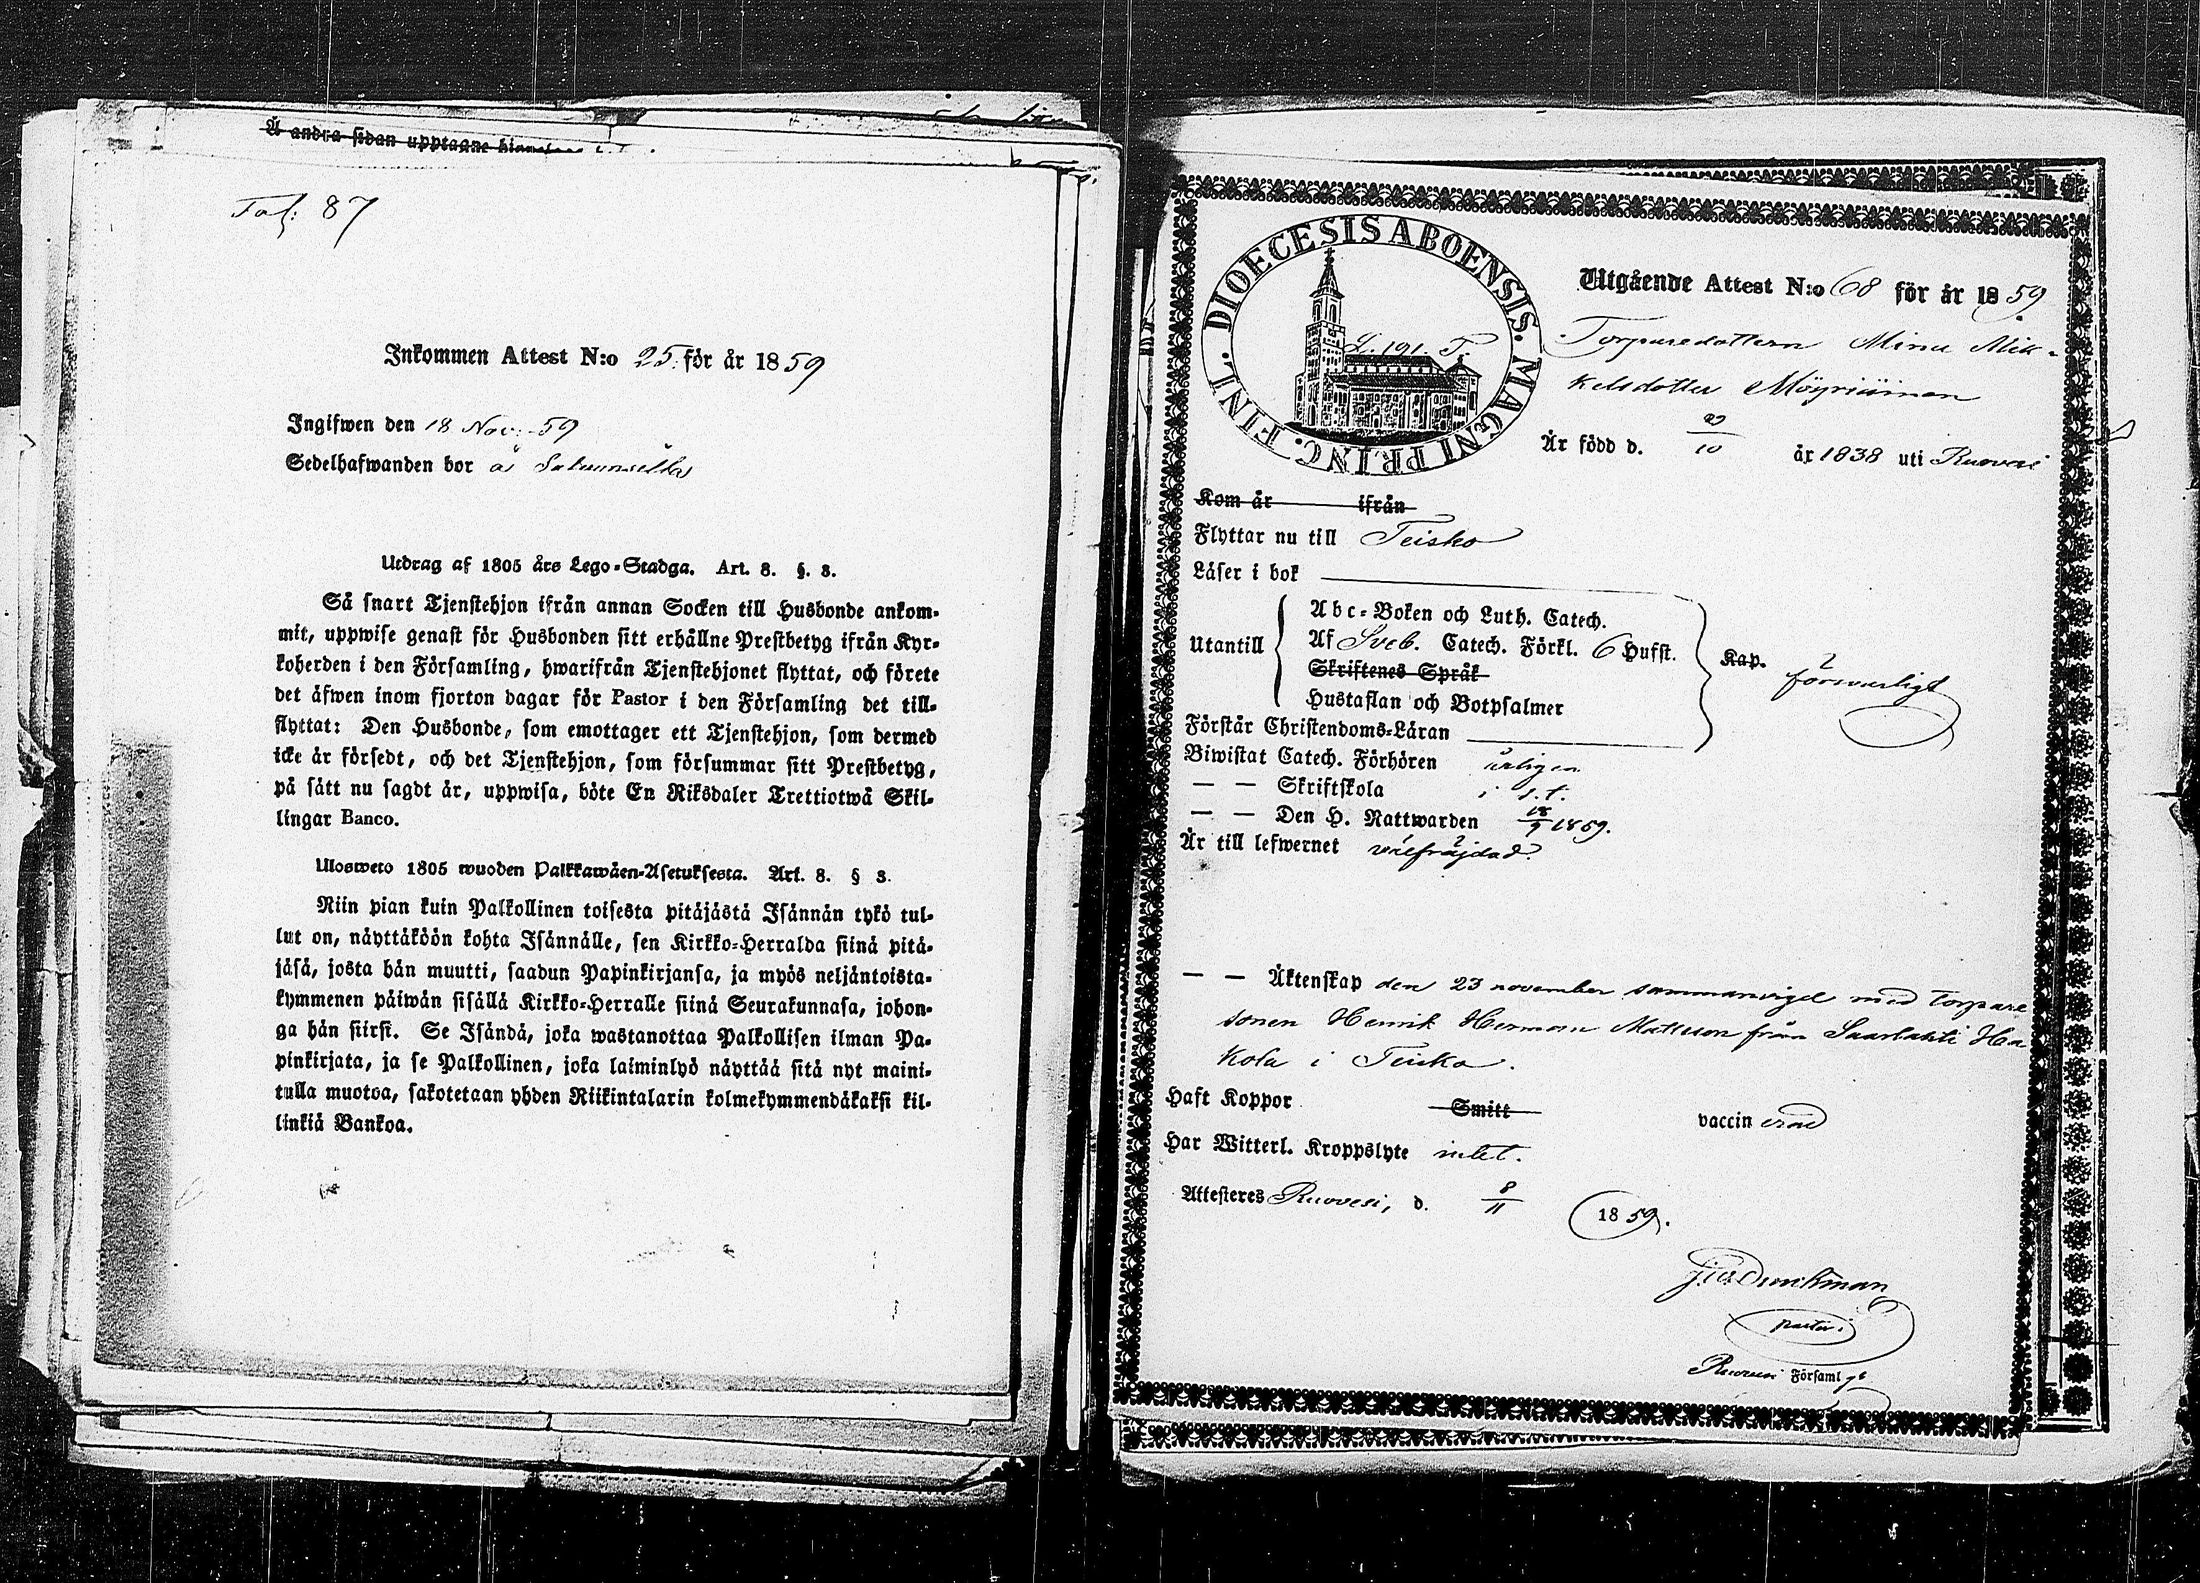 Å andra sidan upptagne
Fol: 87
Inkommen Attest N:o 25. för år 1859
Ingifwen den 18 Nov: 59
Sedelhafwanden bor å
Utdrag af 1805 års Lego-Stadga. Art. 8. §. 3.
Så snart Tjenstehjon ifrån annan Socken till Husbonde ankom-
mit, uppwise genast för Husbonden sitt erhållne Prestbetyg ifrån Kyr-
koherden i den Församling, hwarifrån Tjenstehjonet flyttat, och förete
det äfwen inom fjorton dagar för Pastor i den Församling det till-
flyttat: Den Husbonde, som emottager ett Tjenstehjon, som dermed
icke är försedt, och det Tjenstehjon, som försummar sitt Prestbetyg,
på sätt nu sagdt är, uppwisa, böte En Riksdaler Trettiotwå Skil-
lingar Banco.
Ulosweto 1805 wuoden Palkkawäen-Asetuksesta. Art. 8. § 3.
Niin pian kuin Palkollinen toisesta pitäjästä Isännän tykö tul-
lut on, näyttäköön kohta Isännälle, sen Kirkko-Herralda siinä pitä-
jäsä, josta hän muutti, saadun Papinkirjansa, ja myös neljäntoista-
kymmenen päiwän sisällä Kirkko-Herralle siinä Seurakunnasa, johon-
ga hän siirsi. Se Isändä, joka wastanottaa Palkollisen ilman Pa-
pinkirjata, ja se Palkollinen, joka laiminlyö näyttää sitä nyt maini-
tulla muotoa, sakotetaan yhden Riikintalarin kolmekymmendäkaksi kil-
linkiä Bankoa.
DIOECESIS ABOENSIS. MAGNI PRINC. FINL.
L. 191. T.
Utgående Attest N:o 68 för år 1859
Torparedottern Mina Mik-
kelsdotter
Är född d. 29/10 år 1838 uti Ruovesi
Kom år ifrån
Flyttar nu till Teisko
Läser i bok
Utantill
Abc-Boken och Luth. Catech.
Af Sveb. Catech. Förkl. 6 Hufst.
Skriftenes Språk
Hustaflan och Botpsalmer
Kap.
försvarligt
Förstår Christendoms-Läran
Biwistat Catech. Förhören årligen
— — Skriftskola i s. t.
— — Den H. Nattwarden 18/9 1859.
Är till lefwernet välfräjdad.
— — Äktenskap den 23 november sammanvigd med torpare
sonen Henrik Herman Mattsson från Saarlahti Ha
kola i Teisko.
Haft Koppor Smitt vaccinerad
Har Witterl. Kroppslyte intet.
Attesteres Ruovesi, d. 8/11 1859.
Dunckman
pastor i
Ruovesi Församlg